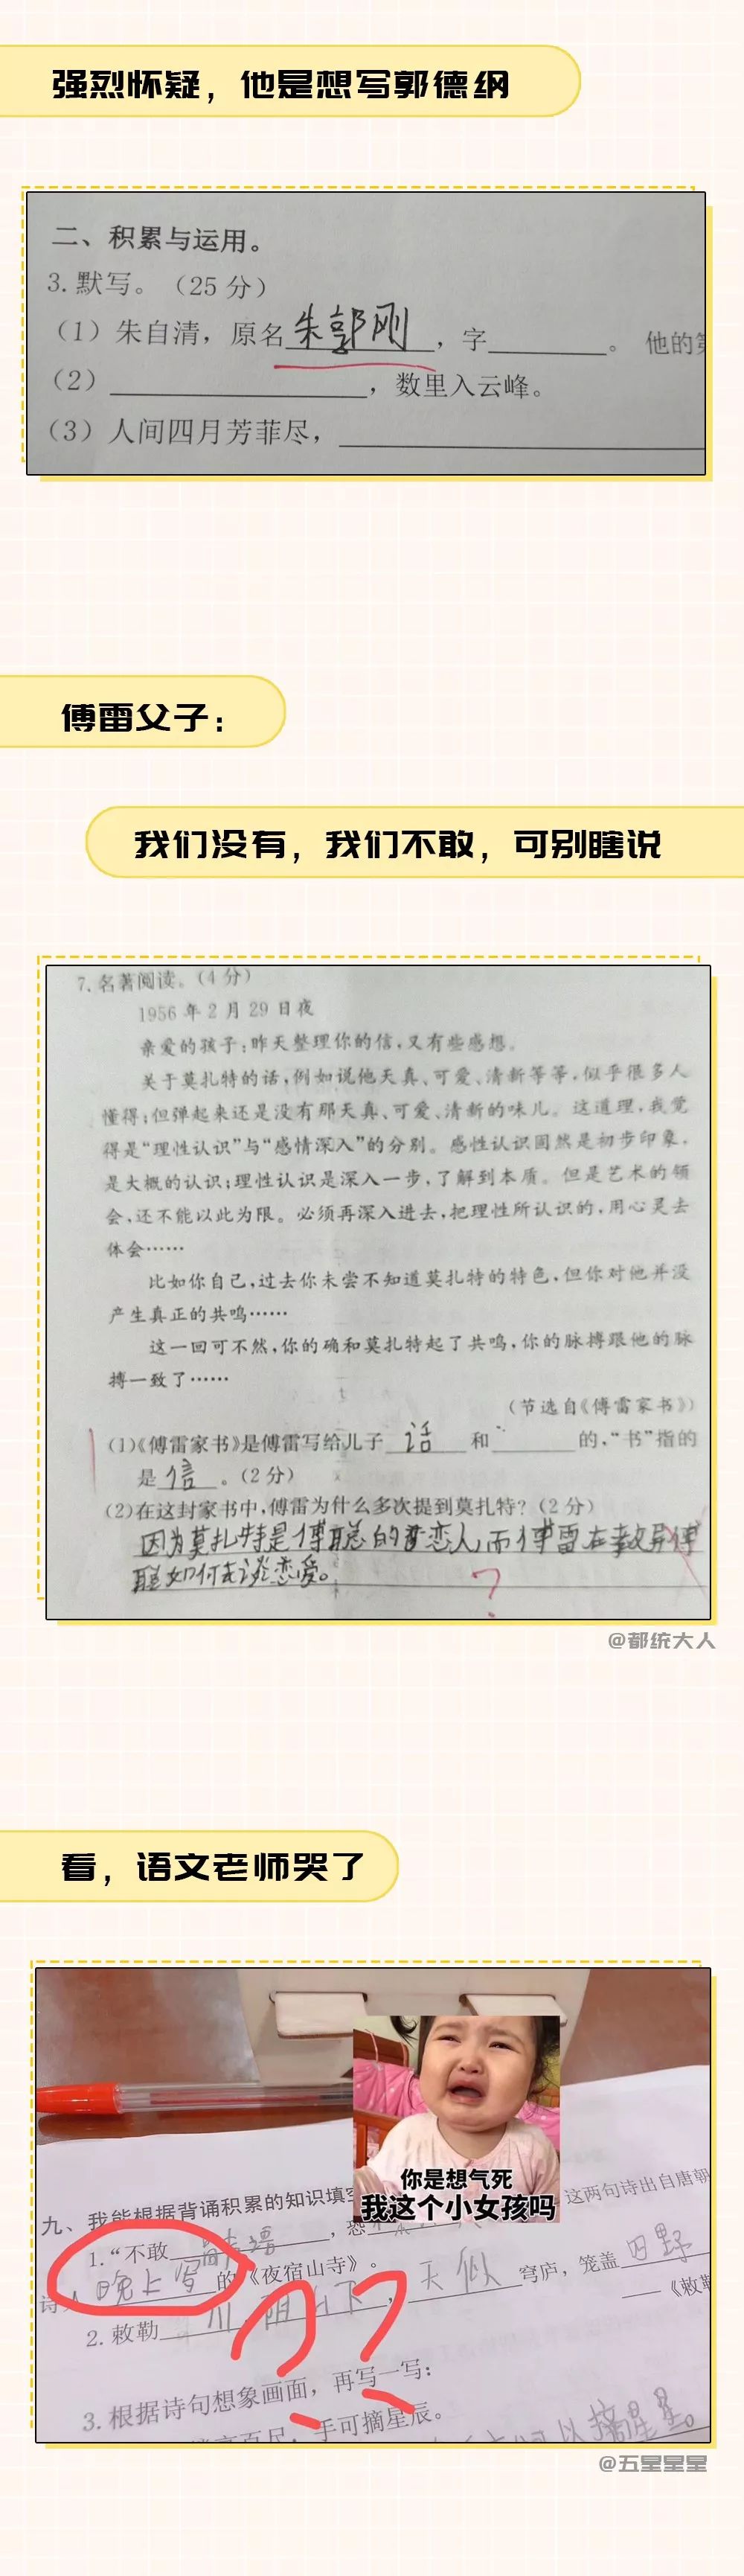 强烈怀疑，他是想写郭德纲
二、积累与运用。
3.默写。（25分）
（1）朱自清，原名朱郭刚，字______。他的第
（2）______，数里入云峰。
（3）人间四月芳菲尽，______
傅雷父子：
我们没有，我们不敢，可别瞎说
7.名著阅读。（4分）
1956年2月29日夜
亲爱的孩子：昨天整理你的信，又有些感想。
关于莫扎特的话，例如说他天真、可爱、清新等等，似乎很多人
懂得；但弹起来还是没有那天真、可爱、清新的味儿。这道理，我觉
得是“理性认识”与“感情深入”的分别。感性认识固然是初步印象，
是大概的认识；理性认识是深入一步，了解到本质。但是艺术的领
会，还不能以此为限。必须再深入进去，把理性所认识的，用心灵去
体会……
比如你自己，过去你未尝不知道莫扎特的特色，但你对他并没
产生真正的共鸣……
这一回可不然，你的确和莫扎特起了共鸣，你的脉搏跟他的脉
搏一致了……
（节选自《傅雷家书》）
（1）《傅雷家书》是傅雷写给儿子 话 和______的，“书”指的
是 信 。（2分）
（2）在这封家书中，傅雷为什么多次提到莫扎特？（2分）
因为莫扎特是傅聪的恋人，而傅雷在教导傅
聪如何去谈恋爱。
?
@都统大人
看，语文老师哭了
你是想气死
我这个小女孩吗
九、我能根据背诵积累的知识填空
1.“不敢______，恐
这两句诗出自唐朝
诗人晚上写的《夜宿山寺》。
2.敕勒川，阴山下，天似穹庐，笼盖田野
——《敕勒
??
3.根据诗句想象画面，再写一写：
高百尺，手可摘星辰。
以摘星星。
@五星星星